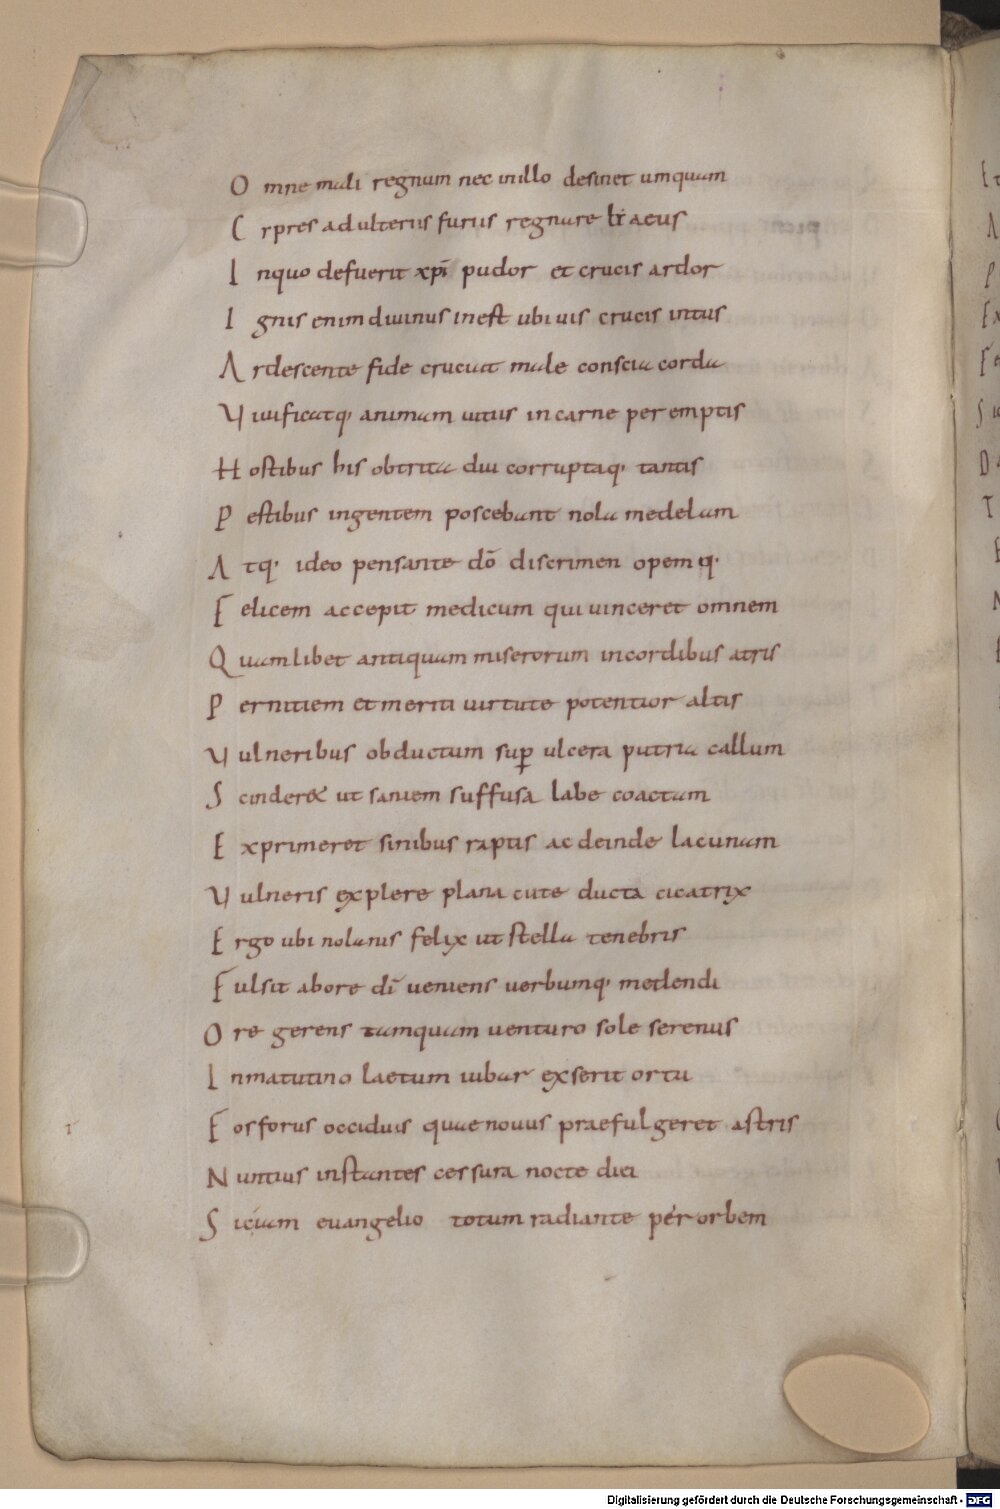 Omne mali regnum nec inillo desinet umquam
C rpres adulterius furiis regnare aeuus
Inquo defuerit xpī pudor et crucis ardor
Ignis enim diuinus inest ubi uis crucis intus
Ardescente fide cruciat male conscia corda
Viuificatq; animam uitiis incarne peremptis
Hostibus his obtrita diu corruptaq; tantis
Pestibus ingentem poscebant nola medelam
Atq; ideo pensante dō discrimen opemq;
Felicem accepit medicum qui uinceret omnem
Quamlibet antiquam miserorum incordibus atris
Pernitiem et meriti uirtute potentior altis
Vulneribus obductum sup ulcera putria callum
Scinderet ut saniem suffusa labe coactam
Exprimeret sinibus raptis ac deinde lacunam
Vulneris explere plana cute ducta cicatrix
Ergo ubi nolanis felix ut stella tenebris
Fulsit abore dī ueniens uerbumq; medendi
Ore gerens tamquam venturo sole serenus
Inmatutino laetum iubar exserit ortu
Fosforus occiduis quae nouus praefulgeret astris
Nuntius instantes cessura nocte diei
Siciam euangelio totum radiante per orbem
Digitalisierung gefördert durch die Deutsche Forschungsgemeinschaft - DFG